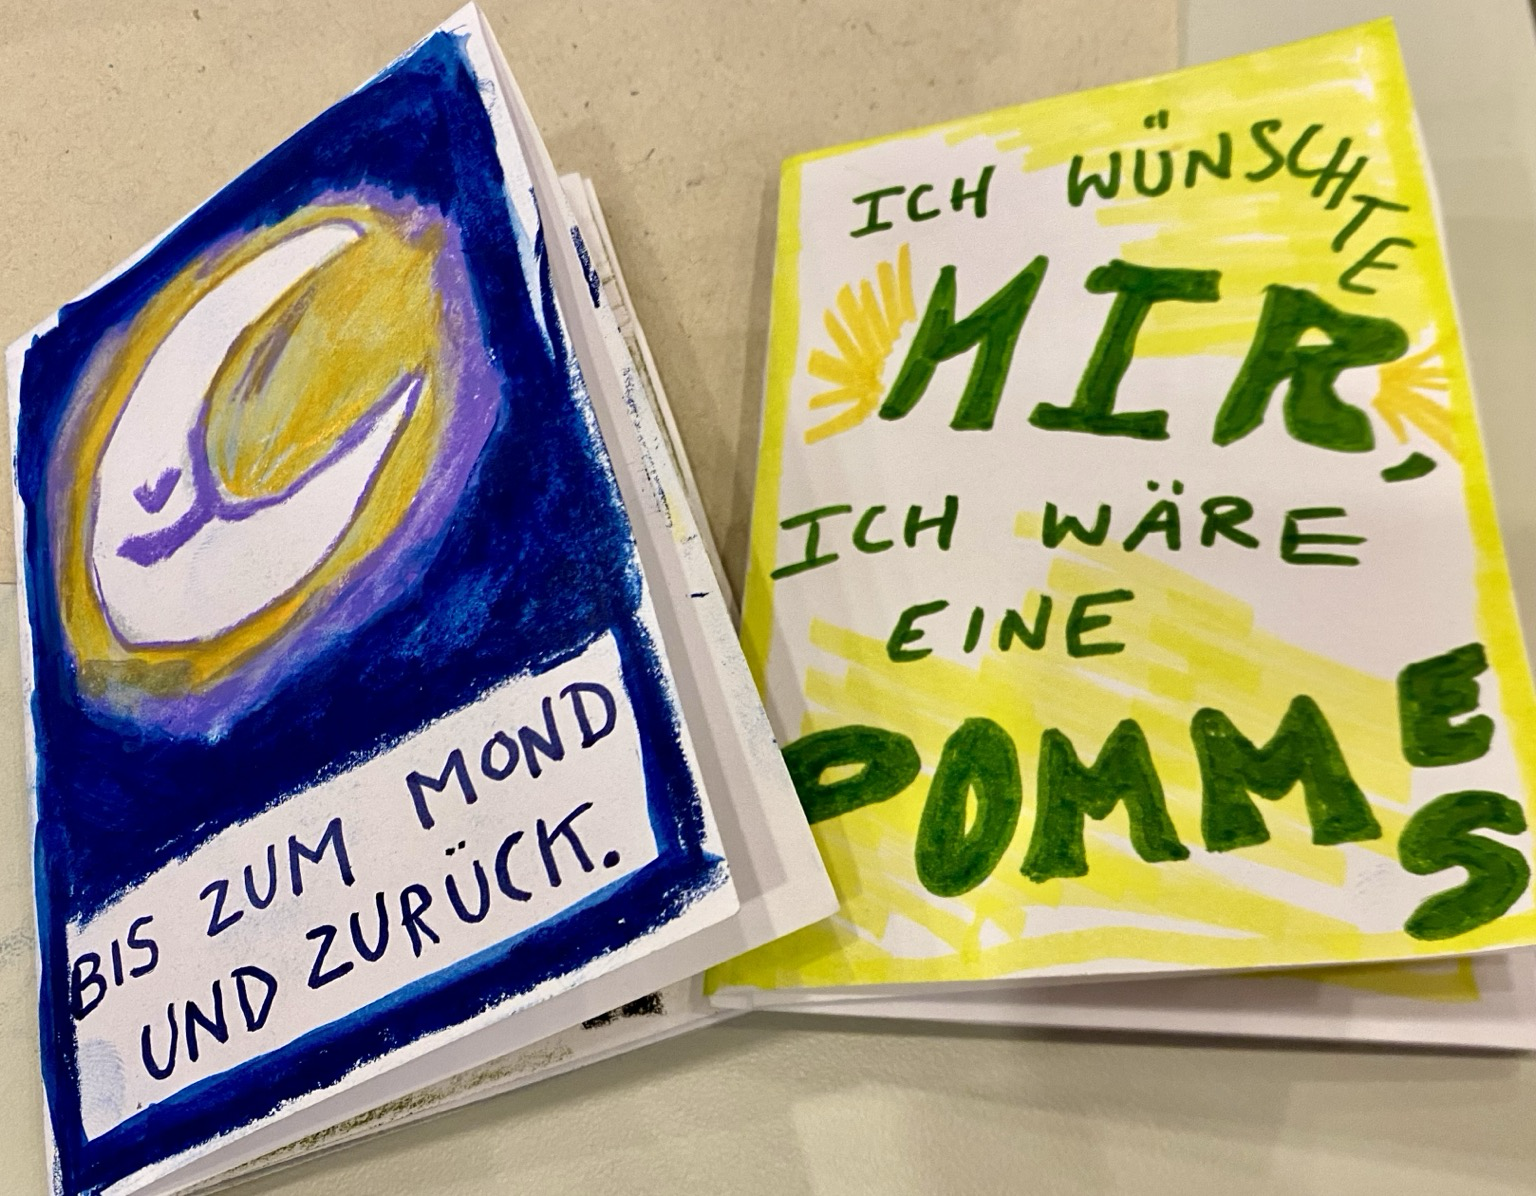 BIS ZUM MOND
UND ZURÜCK.
ICH WÜNSCHTE
MIR,
ICH WÄRE
EINE
POMMES